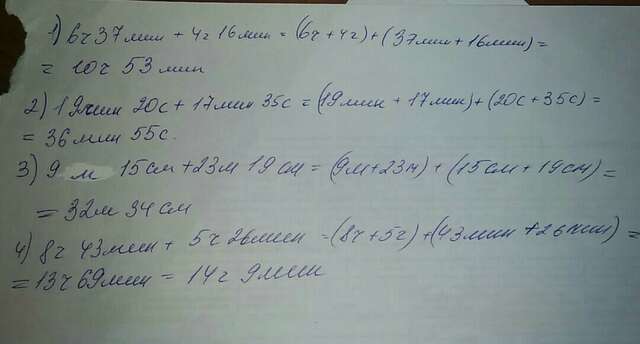 1) 6ч 37мин + 4ч 16мин = (6ч + 4ч) + (37мин + 16мин) =
= 10ч 53 мин
2) 19мин 20с + 17мин 35с = (19мин + 17мин) + (20с + 35с) =
= 36 мин 55с.
3) 9 м 15см + 23м 19см = (9м + 23м) + (15см + 19см) =
= 32м 34см
4) 8ч 43мин + 5ч 26мин = (8ч + 5ч) + (43мин + 26мин) =
= 13ч 69мин = 14ч 9мин